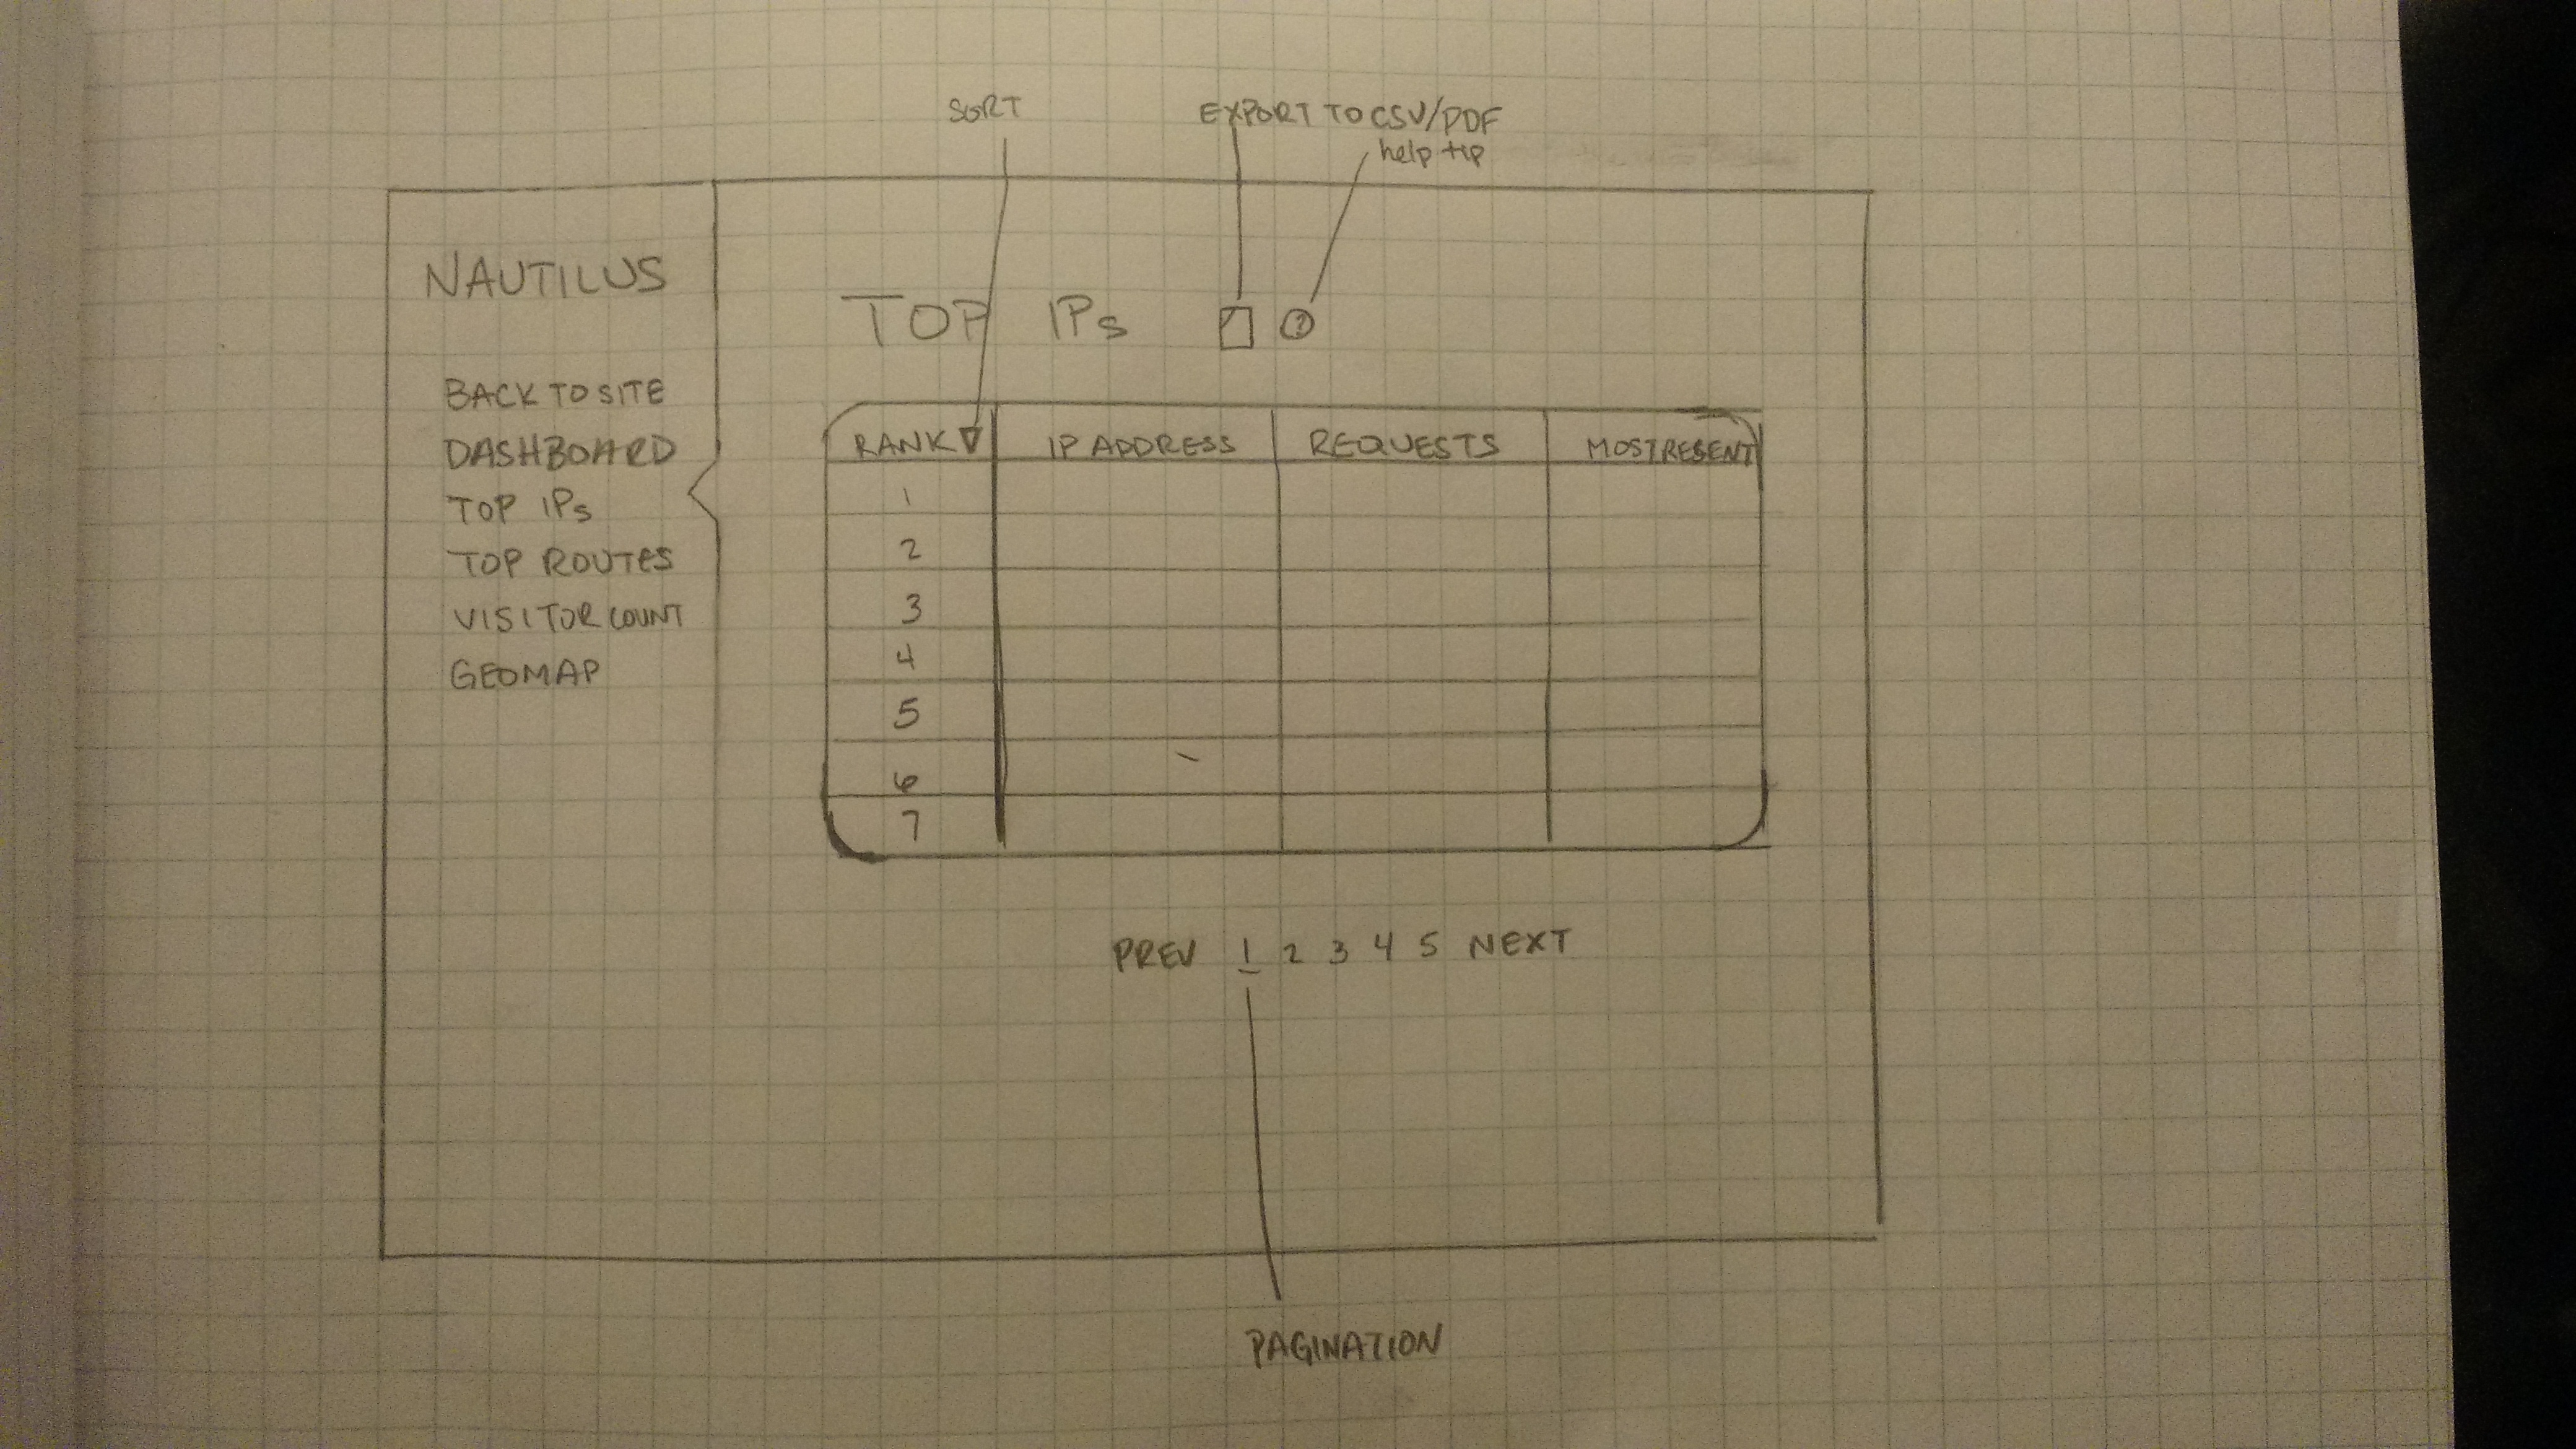 SORT
EXPORT TO CSV/PDF
help tip
NAUTILUS
BACK TO SITE
DASHBOARD
TOP IPs
TOP ROUTES
VISITOR COUNT
GEOMAP
TOP IPs ?
RANK IP ADDRESS REQUESTS MOST RESENT
1
2
3
4
5
6
7
PREV 1 2 3 4 5 NEXT
PAGINATION